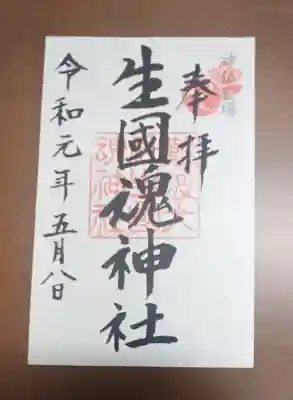 奉拝
生國魂神社
令和元年五月八日